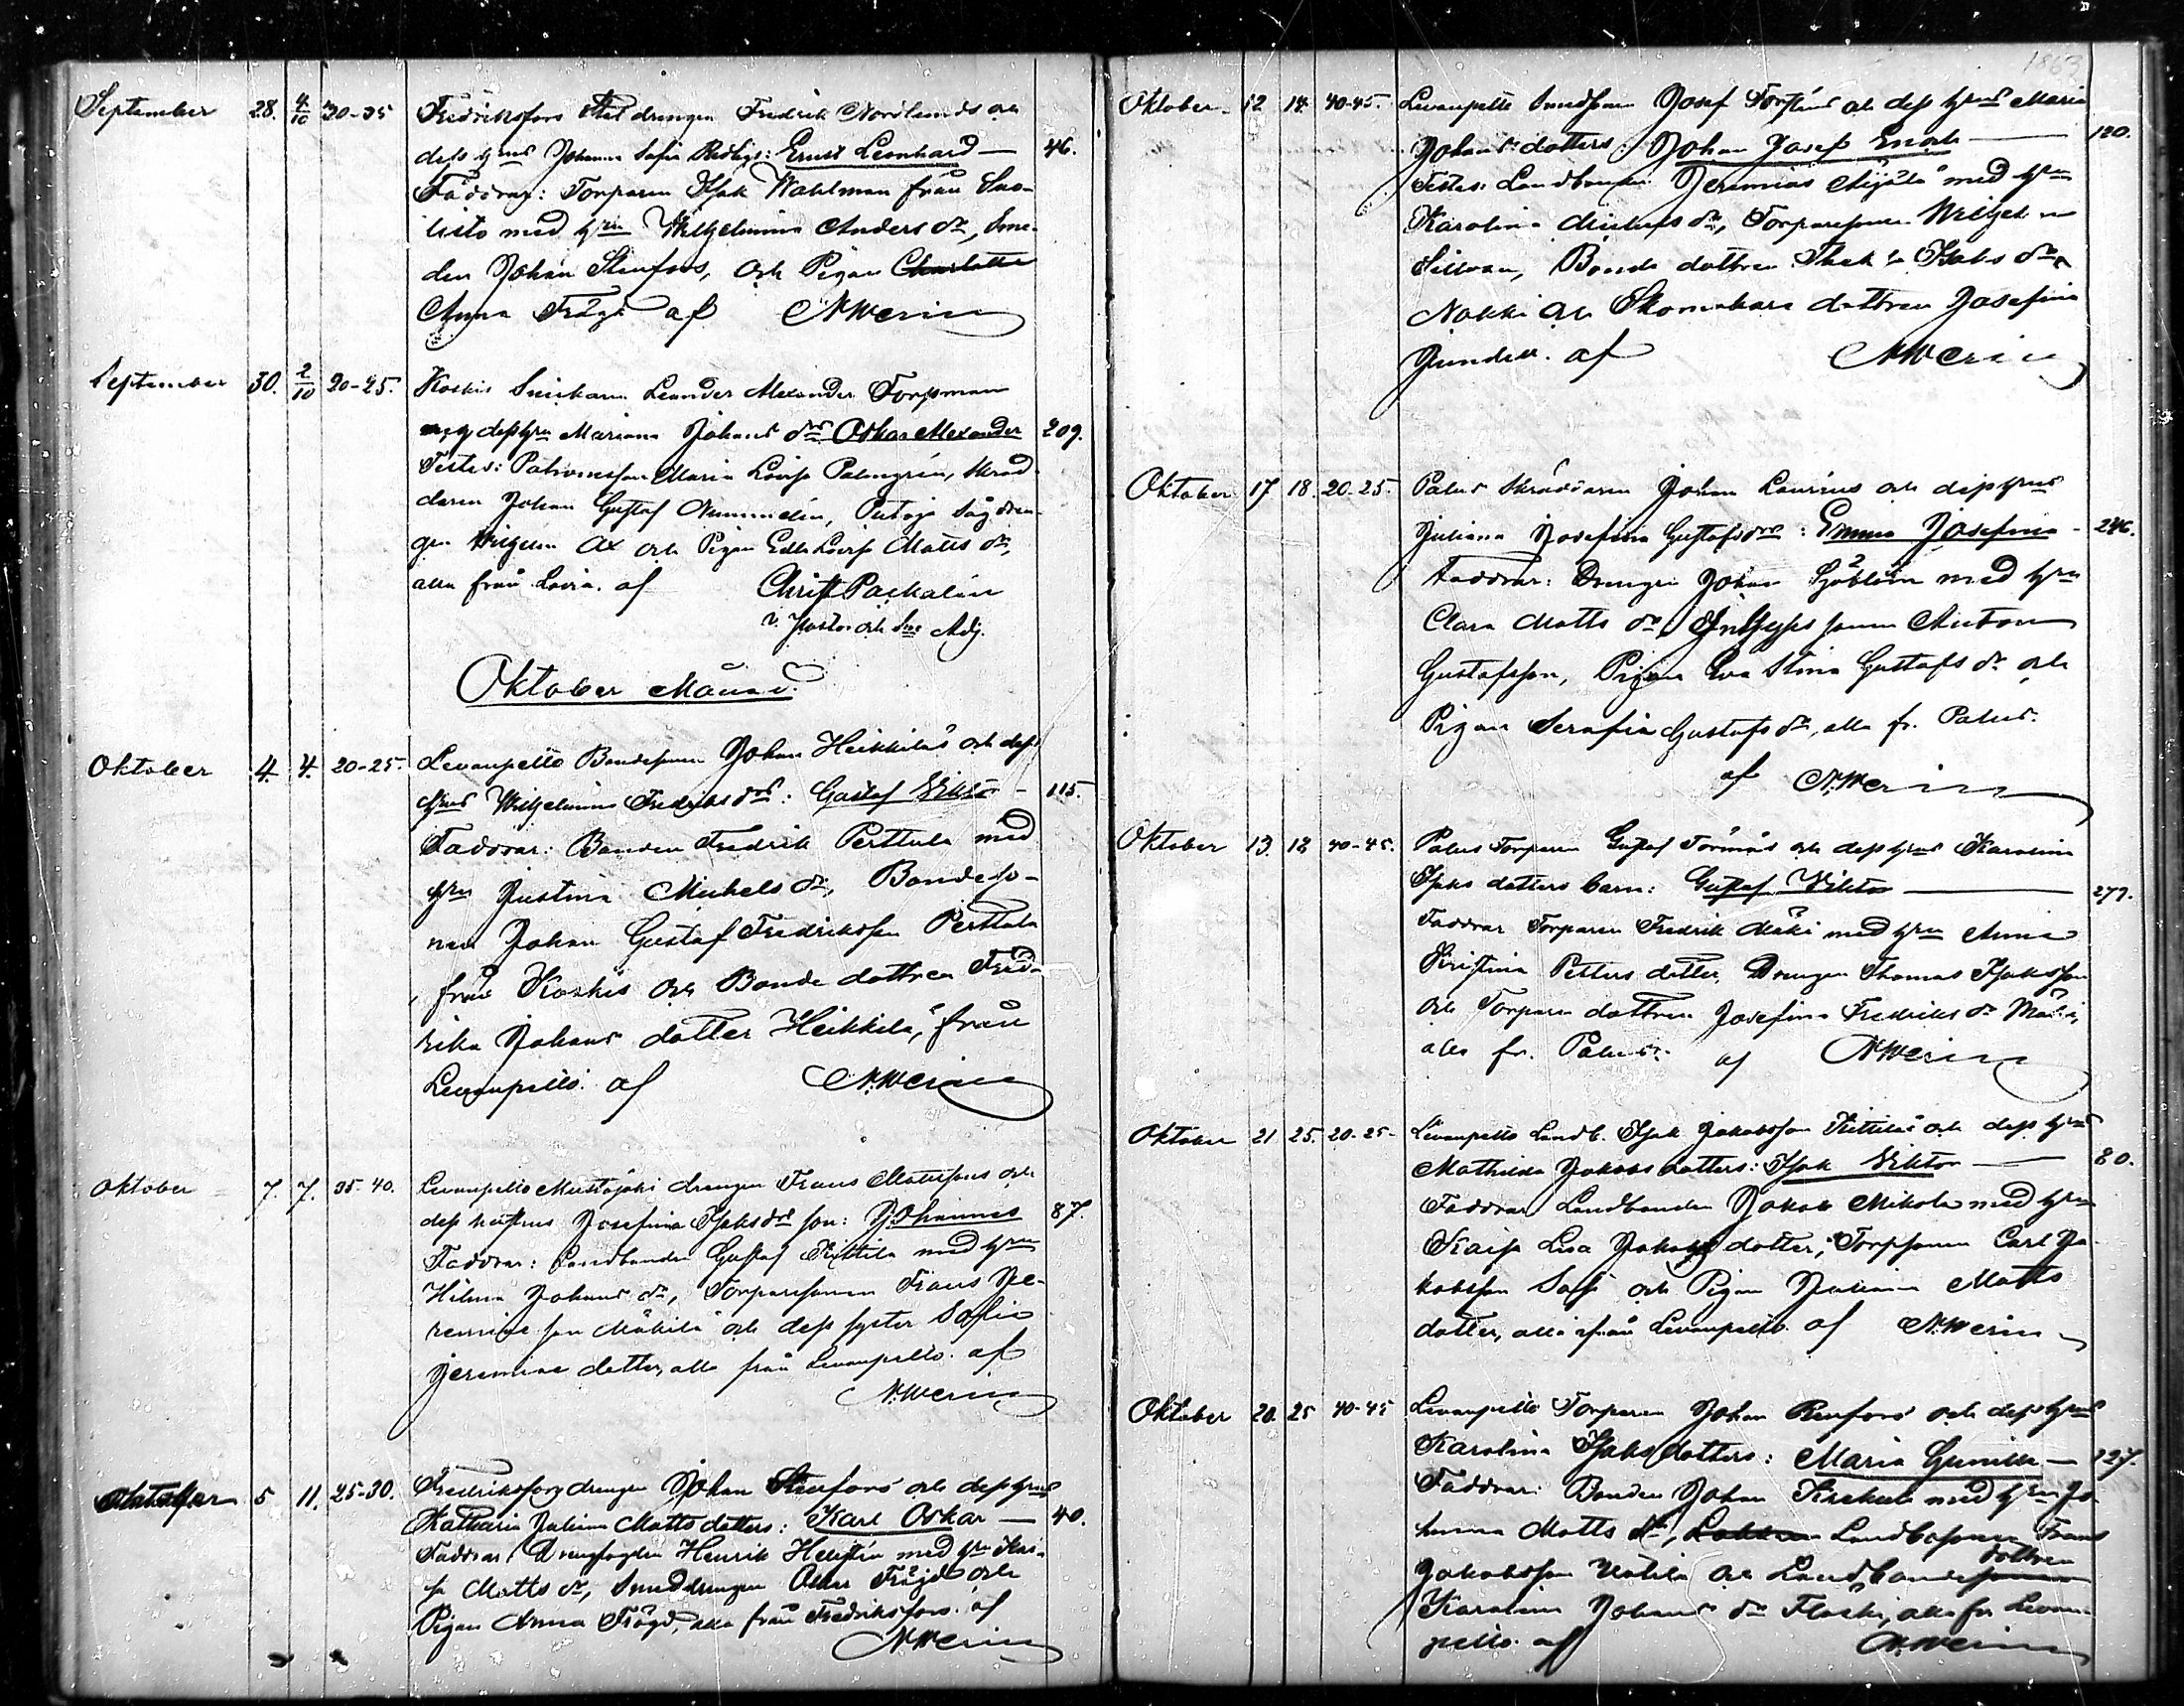 September 28. 4/10 30-35 Fredriksfors drengen Fredrik Nordlunds och
dess hrus Johanna Sofia : Ernst Leonhard — 46.
Faddrar: Torparen Isak Wahlman från Sao-
listo med hru Wilhelmina Anders dr, Sme-
den Johan Stenfors, och Pigan Charlotta
Anna Frögd af N Werin
September 30. 2/10 20-25. Koskis Snickarn Leander Alexander Forsman
dess hru Mariana Johans drs Oskar Alexander 209.
Testes: Maria Lovisa Palmgrén, Skräd-
daren Johan Gustaf Nummelin, Sågdren-
gen Wilhelm Ax och Pigan Edla Lovisa Matts dr,
alla från Lavia. af Christ Packalén
v. Pastor och Adj.
Oktober Månad.
Oktober 4. 4. 20-25. Levanpelto Bondesonen Johan Heikkilä's och dess
hrus Wilhelmina Fredriks drs: Gustaf Viktor - 115.
Faddrar: Bonden Fredrik Perttula med
hru Justina Michels dr, Bondeso-
nen Johan Gustaf Fredriksson Perttula
från Koskis och Bonde dottren Fred-
rika Johans dotter Heikkilä, från
Levanpelto. af N. Werin
Oktober 7. 7. 35-40. Levanpelto Mustajoki drengen Frans Mattssons och
dess hustrus Josefina Isaks drs son: Johannes 87.
Faddrar: Landbonden Gustaf Kittilä med hru
Hilma Johans dr, Torparesonen Frans Je-
remiae son Mäkilä och dess syster Sofia
Jeremiae dotter, alla från Levanpelto. af
N. Werin
Oktober 5 11. 25-30. Fredriksfors drengen Johan Stenfors och dess hrus
Katharina Juliana Matts dotters: Karl Oskar — 40.
Faddrar: Drengfogden Henrik Hellstén med hru Kai-
sa Matts dr, Smeddrengen Oskar Frögd och
Pigan Anna Frögd, alla från Fredriksfors. af
N Werin
1863
Oktober 12 14. 40-45. Levanpelto Smedsonen Josef Torsténs och dess hrus Maria
Johans dotters Johan Josef Enok — 120.
Testes: Landbonden Jeremias Äijälä med hru
Karolina Michels dr, Torparesonen Wilhelm
Sillman, Bonde dottren Isaks dr
Nokki och Skomakare dottren Josefina
af N Werin
Oktober 17 18. 20-25. Palus Skräddaren Johan Laurins och dess hrus
Juliana Josefina Gustafs drs: Emma Josefina - 246.
Faddrar: Drengen Johan Sjöblom med hru
Clara Matts dr, Inhyses sonen Anton
Gustafsson, Pigan Eva Stina Gustafs dr och
Pigan Serafia Gustafs dr, alla fr. Palus.
af N. Werin
Oktober 13. 18 40-45. Palus Torparen Gustaf Törmäs och dess hrus Karolina
Isaks dotters barn: Gustaf Viktor — 277.
Faddrar Torparen Fredrik Mäki med hru Anna
Kristina Petters dotter, Drengen Thomas Isaksson
och Torpare dottren Josefina Fredriks dr Mäki,
alla fr. Palus. af N Werin
Oktober 21 25. 20-25- Levanpelto Landb. Isak Jakobsson Kittilä's och dess hrus
Mathilda Jakobs dotters: Isak Viktor — 80.
Faddrar Landbonden Jakob Mikola med hru
Kaisa Lisa Jakobs dotter, Torpsonen Carl Ja-
kobsson Sassi och Pigan Johanna Matts
dotter, alla ifrån Levanpelto. af N. Werin
Oktober 20. 25 40-45 Levanpelto Torparen Johan Renfors och dess hrus
Karolina Isaks dotters: Maria Gunilla — 127.
Faddrar: Bonden Johan med hru Jo-
hanna Matts dr, Landbosonen Frans
dottren
Jakobsson Uotila och Landbondesonen
Karolina Johans dr Flaski, alla fr Levan-
pelto. af N. Werin